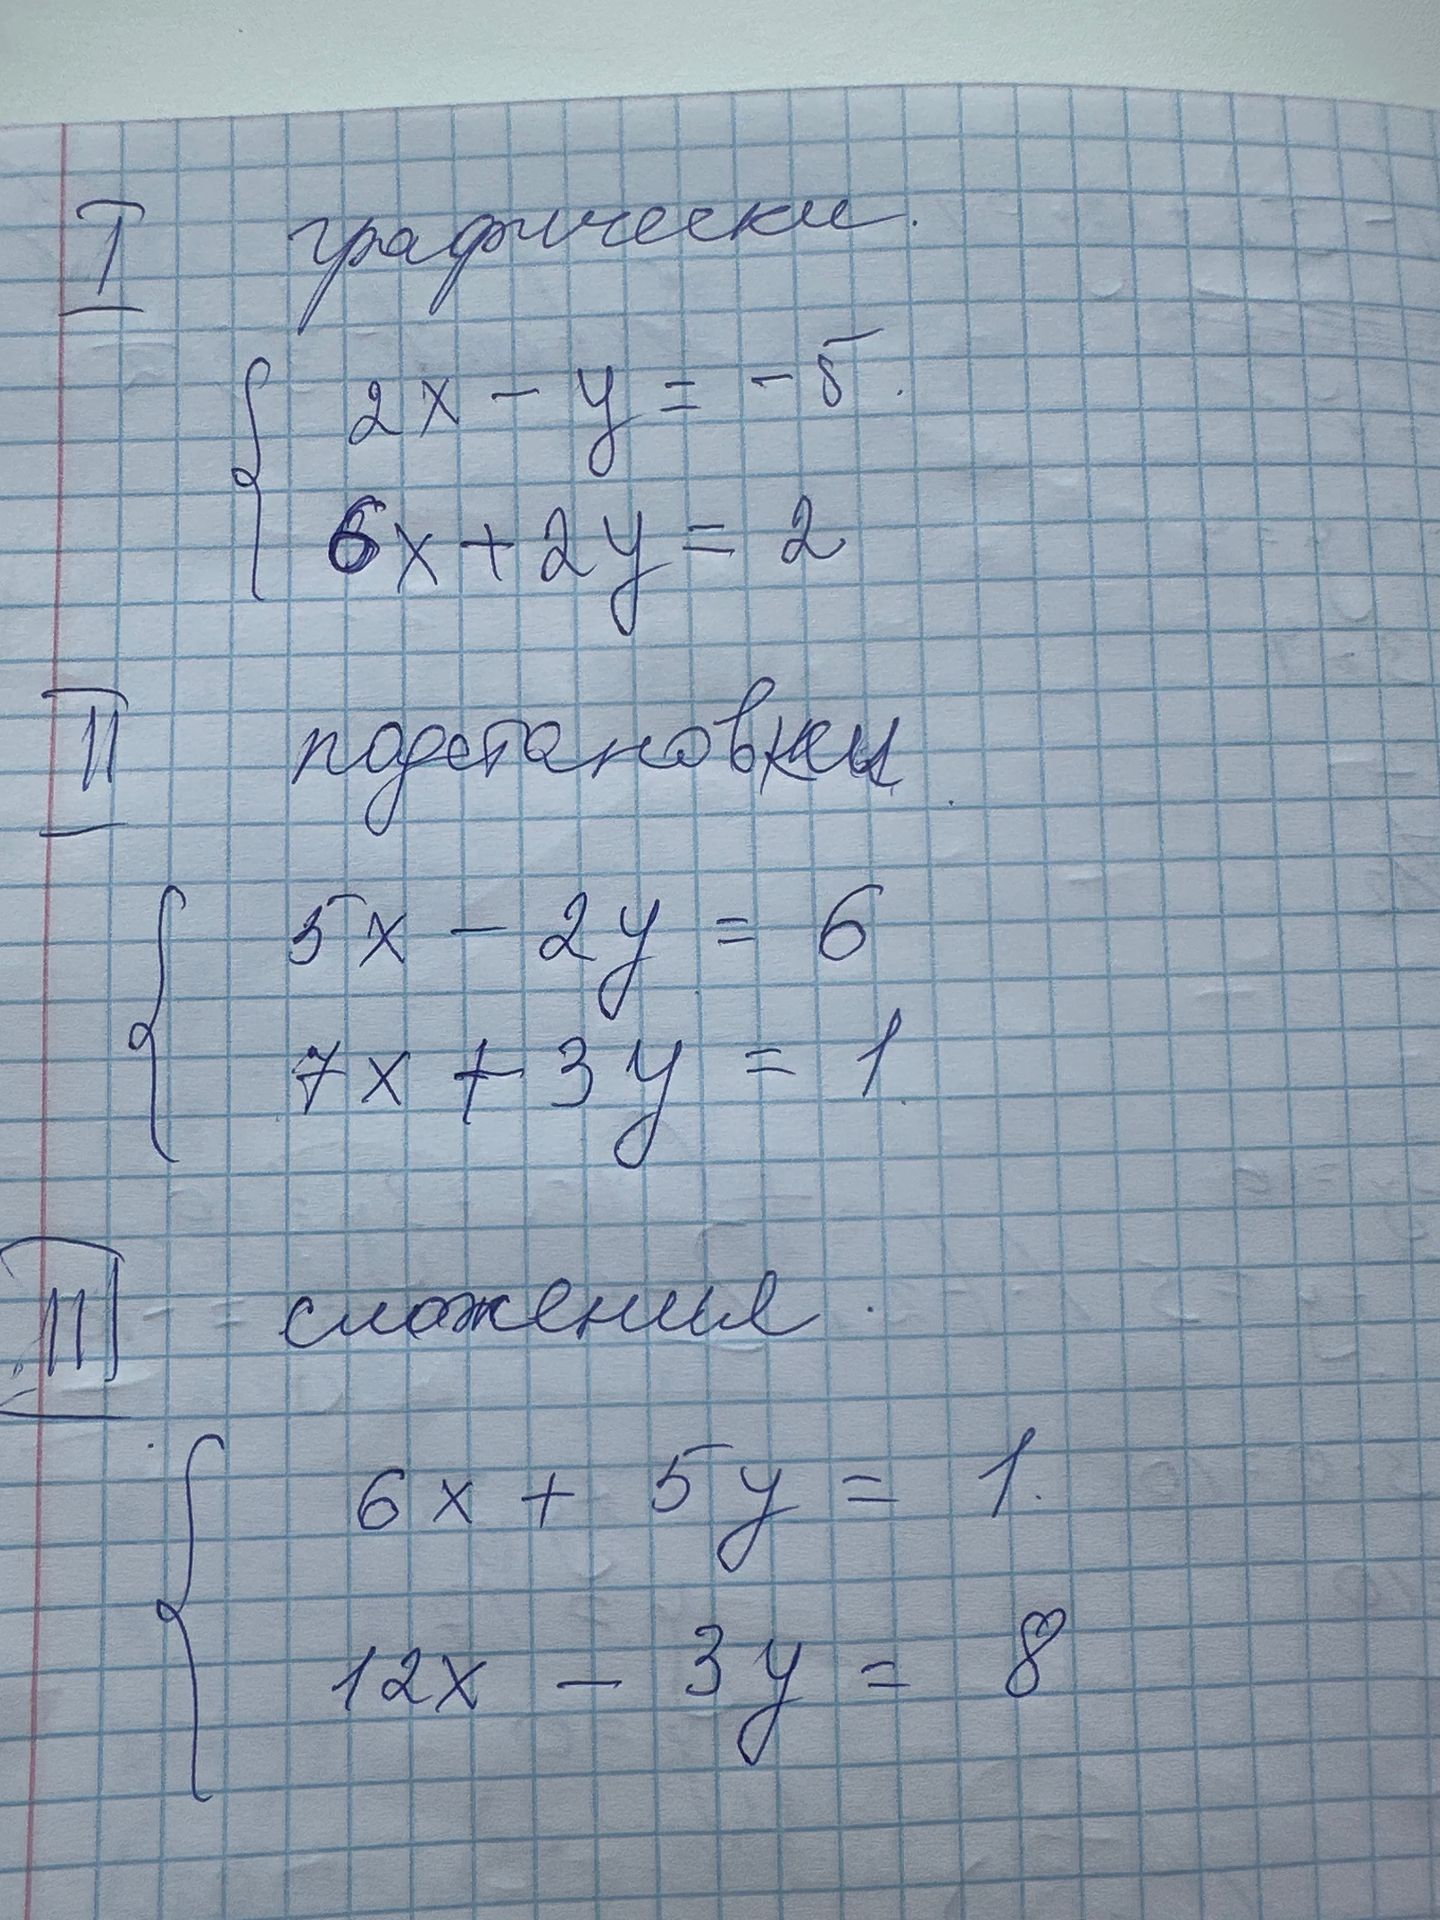 I графически.
2x - y = -5.
6x + 2y = 2
II подстановки
5x - 2y = 6
7x + 3y = 1
III сложения.
6x + 5y = 1.
12x - 3y = 8